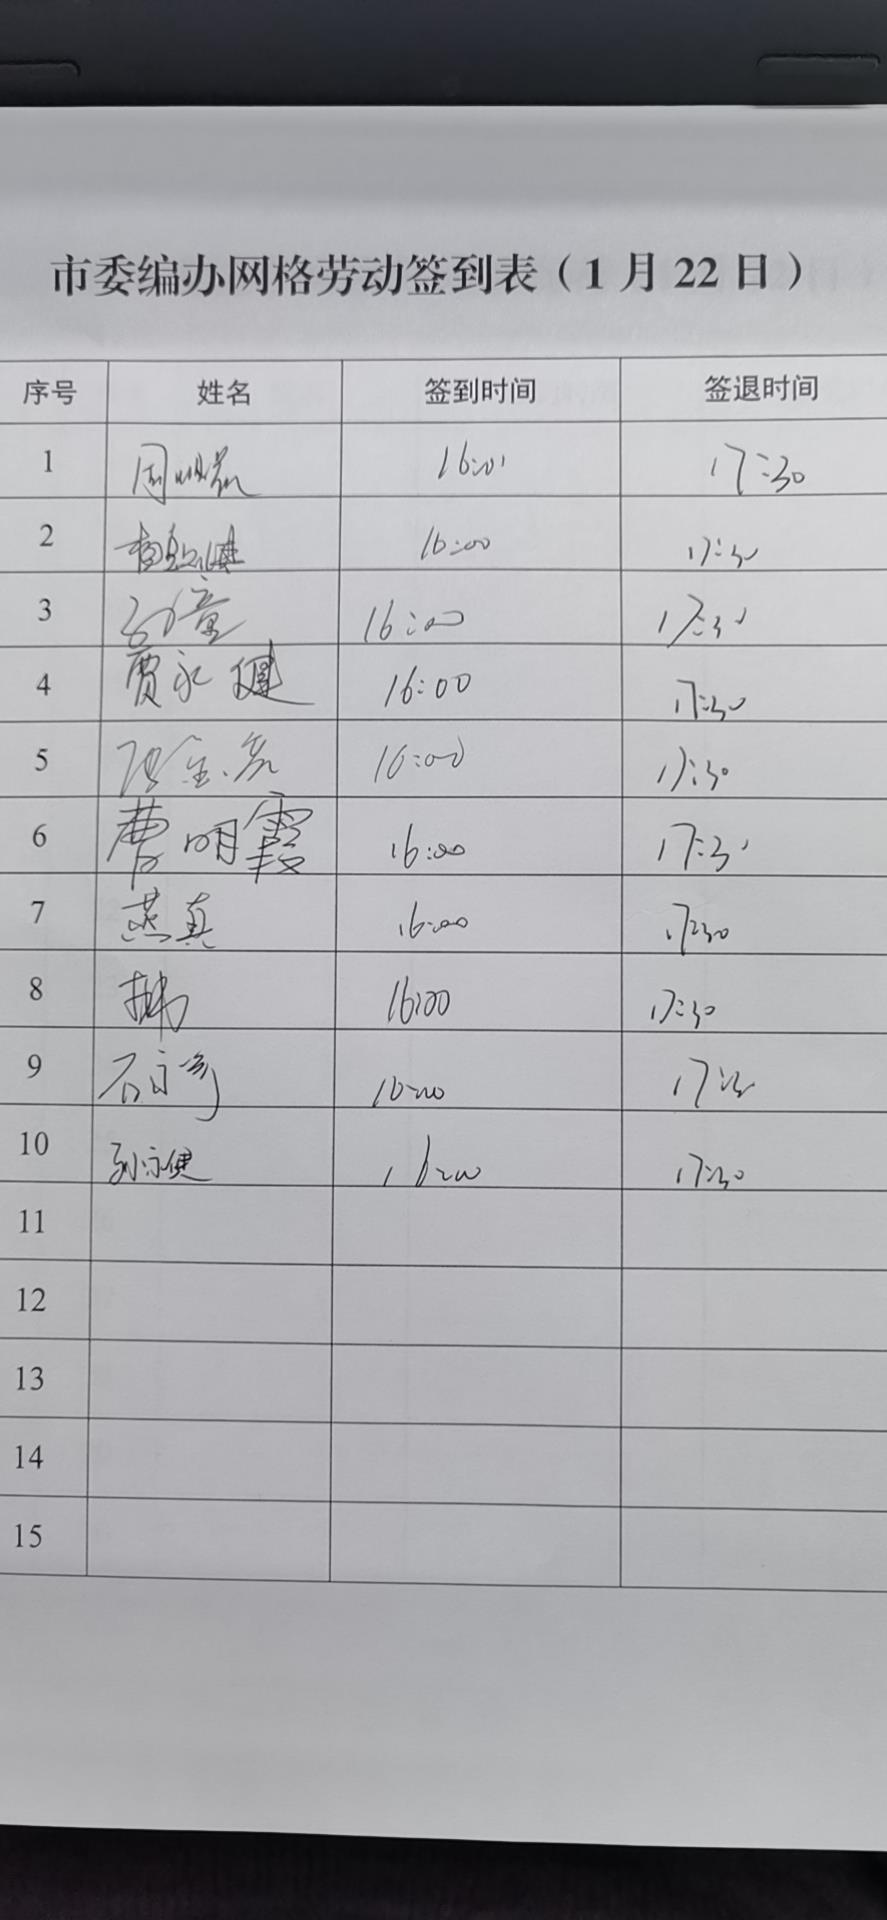 市委编办网格劳动签到表（1月22日）
序号 姓名 签到时间 签退时间
1 17:30
2 16:00 17:30
3 16:00 17:30
4 贾永健 16:00 17:30
5 16:00 17:30
6 曹明霞 16:00 17:30
7 燕真 16:00 17:30
8 16:00 17:30
9 16:00 17:30
10 16:00 17:30
11
12
13
14
15